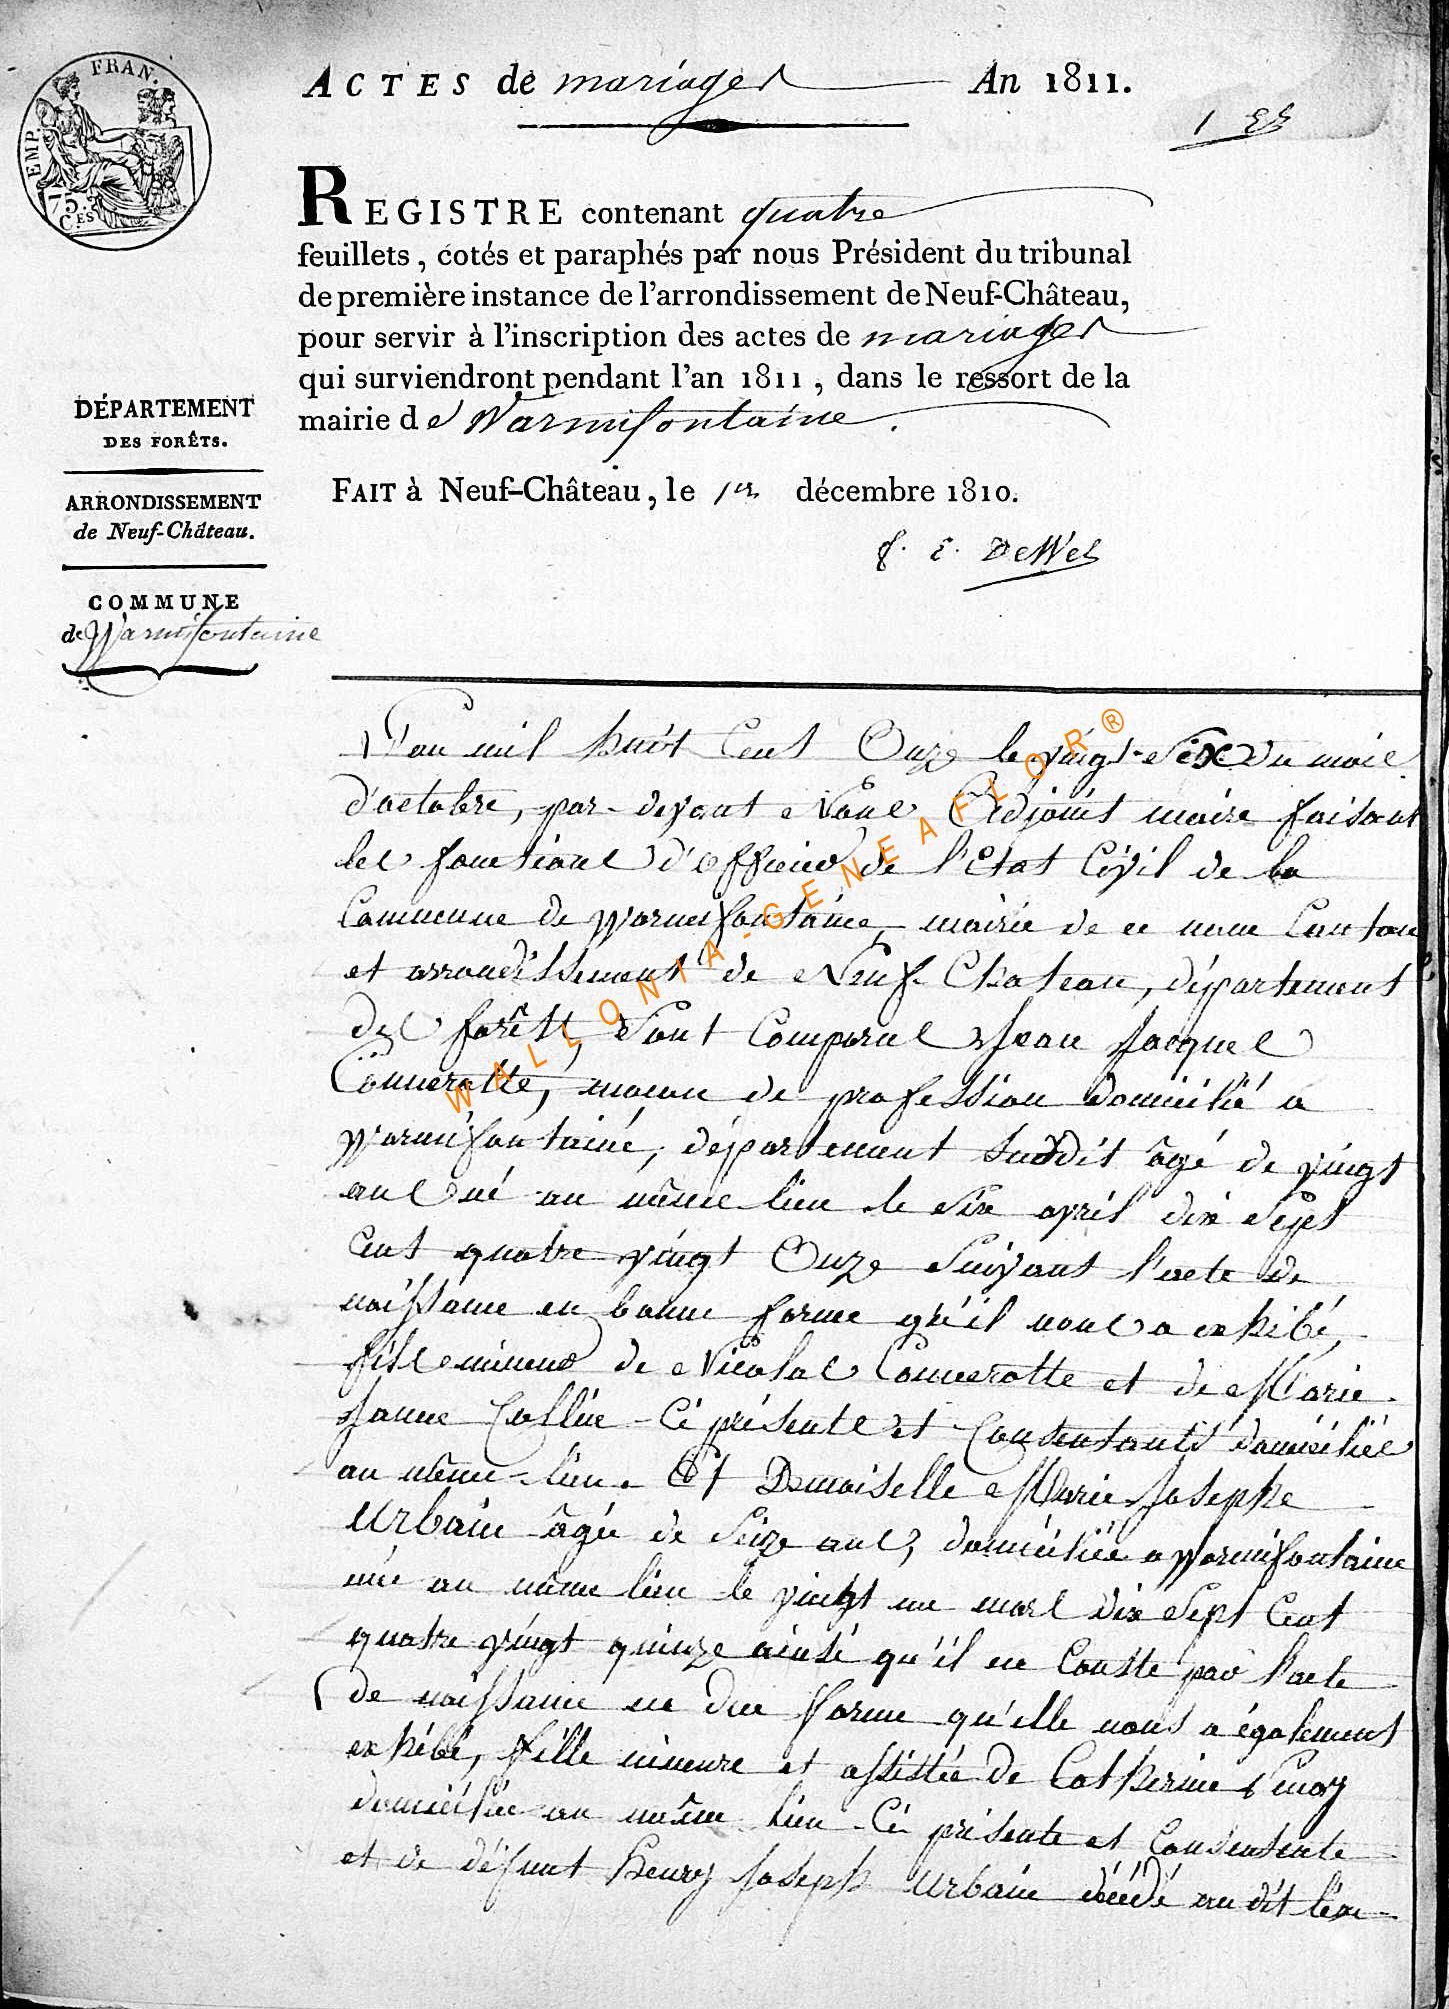 FRAN.
EMP.
75.
C.ES
ACTES de mariages An 1811.
1
REGISTRE contenant quatre
feuillets, cotés et paraphés par nous Président du tribunal
de première instance de l'arrondissement de Neuf-Château,
pour servir à l'inscription des actes de mariages
qui surviendront pendant l'an 1811, dans le ressort de la
mairie de Warmifontaine.
FAIT à Neuf-Château, le 1er décembre 1810.
DÉPARTEMENT
DES FORÊTS.
ARRONDISSEMENT
de Neuf-Château.
COMMUNE
de Warmifontaine
L'an mil huit Cent Onze le vingt-Six du mois
d'octobre, par-devant Nous Adjoint maire faisant
les fonctions d'officier de l'Etat Civil de la
Commune de Warmifontaine, mairie de ce nom Canton
et arrondissement de Neuf-Chateau, département
des forêts, Sont Comparus Jean Jacques
Connerotte, maçon de profession domicilié a
Warmifontaine, département Susdit âgé de vingt
ans né au même lieu le Six avril dix Sept
Cent quatre vingt Onze Suivant l'acte de
naissance en bonne forme qu'il nous a exhibé,
fils mineur de Nicolas Connerotte et de Marie
Janne Collin Ci présents et Consentants domiciliés
au même lieu. Et Demoiselle Marie Josephe
Urbain âgée de Seize ans, domiciliée a Warmifontaine
née au même lieu le vingt un mars dix Sept Cent
quatre vingt quinze ainsi qu'il en Conste par l'acte
de naissance en due forme qu'elle nous a également
exhibé, fille mineure et assistée de Catherine
domiciliée au même lieu Ci présente et Consentente
et de défunt Henry Joseph Urbain décédé au dit lieu
WALLONIA-GENEAFLOR®